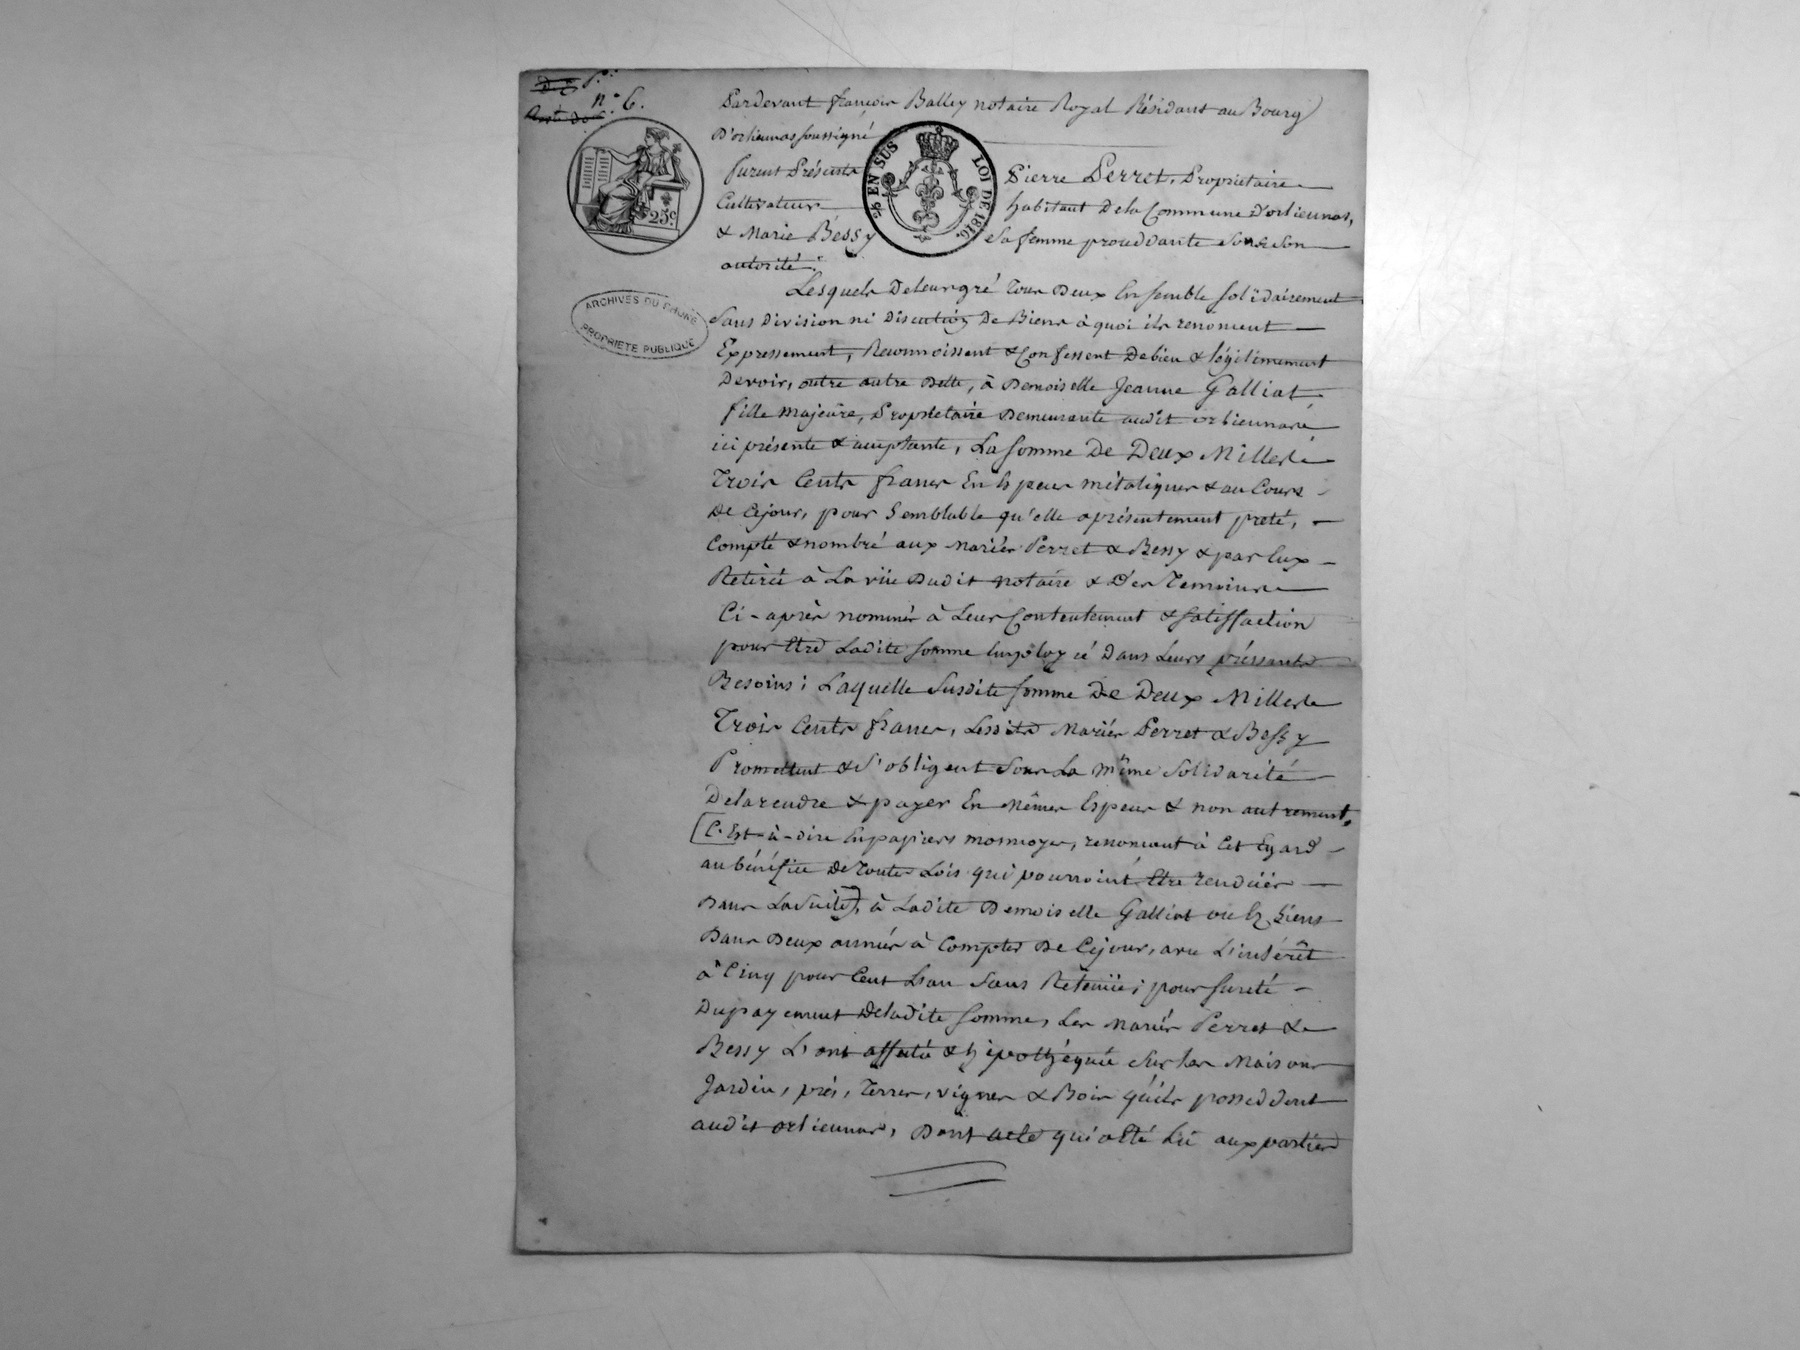 P.r
n.o 6.
25c
¼ EN SUS LOI DE 1816.
ARCHIVES DU RHONE
PROPRIETE PUBLIQUE
Pardevant françois Balley notaire Royal Résidant au Bourg
D'orliennas soussigné
furent Présents Pierre Perret, Proprietaire
Cultivateur habitant De la Commune D'orliennas,
& Marie Bessy sa femme procèddante sous son
autorité.
Lesquels De leur gré Tous Deux Ensemble solidairement
sans Division ni Discution De Biens à quoi ils renoncent
Expressement, Reconnoissent & Confessent De bien & légitimement
Devoir, outre autre Dette, à Demoiselle Jeanne Galliat
fille Majeure, Proprietaire Demeurante audit orliennas
ici présente & acceptante, La somme De Deux Milles
Trois Cents francs En Espèces métaliques & au Cours
De Cejour, pour Semblable qu'elle a présentement preté,
Compté & nombré aux Mariés Perret & Bessy & par Eux
Retiré à La vüe Dudit notaire & Des Temoins
Ci-après nommés à Leur Contentement & satisfaction
pour Etre Ladite somme Employeé Dans Leurs préssants
Besoins; Laquelle Susdite somme De Deux Milles
Trois Cents francs, Lesdits Mariés Perret & Bessy
Promettent & S'obligent sous La même Solidarité
De la rendre & payer En Mêmes Espèces & non autrement,
C'Est-à-dire En papiers monnoyes, renoncent à Cet Egard
au bénéfice De Toutes Lois qui pourroint Etre renduës
Dans La Suite, à Ladite Demoiselle Galliat ou Es Siens
Dans Deux années à Compter De Cejour, avec L'intérêt
à Cinq pour Cent L'an Sans Retenüe; pour sureté
Du payement De ladite somme, Les Mariés Perret &
Bessy L'ont affecté & hipothéquée sur Les Maisons
Jardin, prés, Terres, vignes & Bois qu'ils posseddent
audit orliennas, Dont acte qui a Eté Lu aux parties